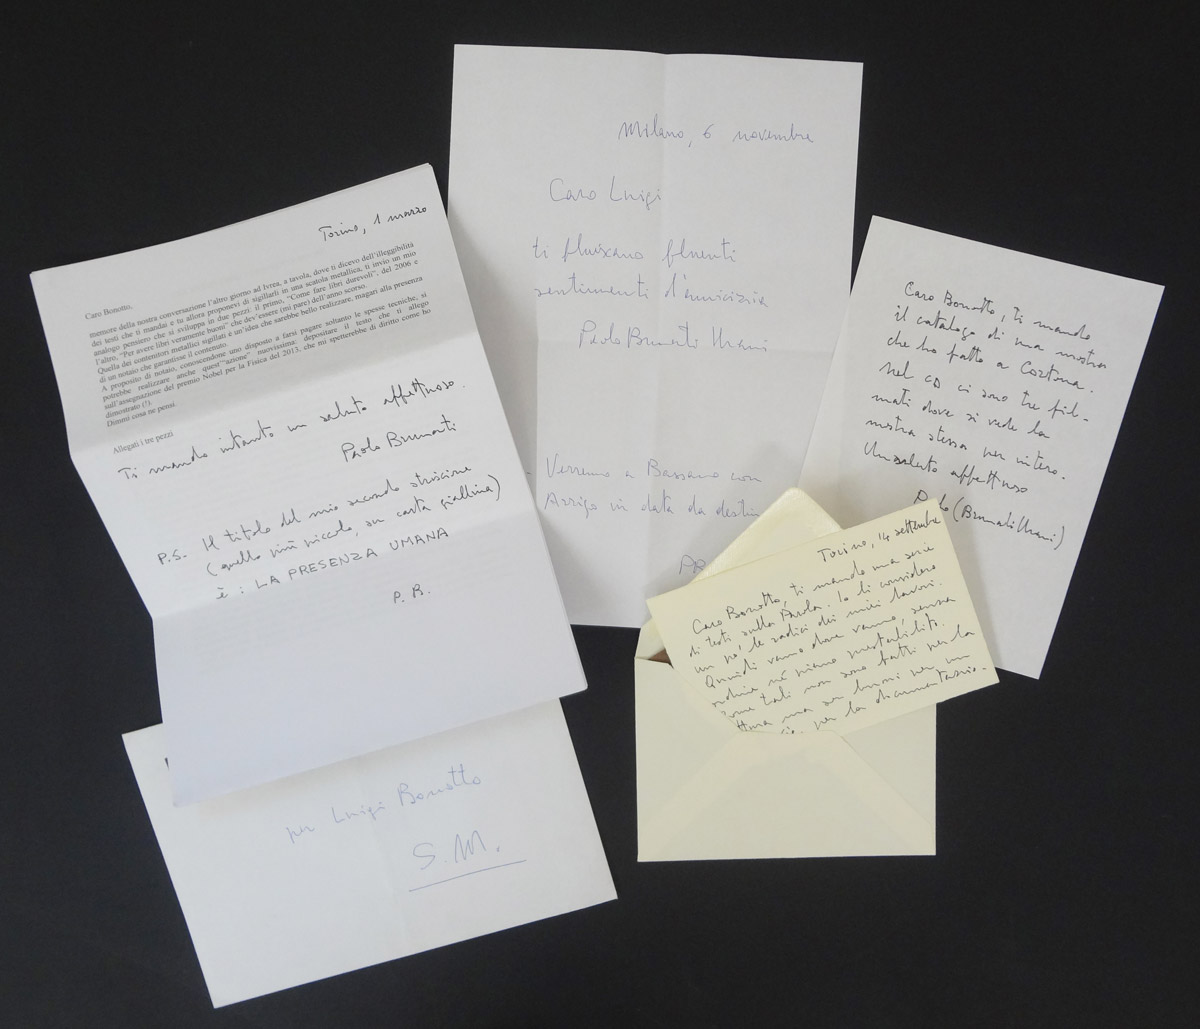 Torino, 1 marzo
Caro Bonotto,
memore della nostra conversazione l'altro giorno ad Ivrea, a tavola, dove ti dicevo dell'illeggibilità
dei testi che ti mandai e tu allora proponevi di sigillarli in una scatola metallica, ti invio un mio
analogo pensiero che si sviluppa in due pezzi: il primo, "Come fare libri durevoli", del 2006 e
l'altro, "Per avere libri veramente buoni" che dev'essere (mi pare) dell'anno scorso.
Quella dei contenitori metallico sigillati è un'idea che sarebbe bello realizzare, magari alla presenza
di un notaio che garantisse il contenuto.
A proposito di notaio, conoscendone uno disposto a farsi pagare soltanto le spesse tecniche, si
potrebbe realizzare anche quest'"azione" nuovissima: depositare il testo che ti allego
sull'assegnazione del premio Nobel per la Fisica del 2013, che mi spetterebbe di diritto come ho
dimostrato (!).
Dimmi cosa ne pensi
Allegati i tre pezzi
Ti mando intanto un saluto affettuoso.
Paolo Brunati
P.S. Il titolo del mio secondo striscione
(quello più piccolo, su carta giallina)
è: LA PRESENZA UMANA
P. B.
Milano, 6 novembre
Caro Luigi
ti fluiscano fluenti
sentimenti d'amicizia
Paolo Brunati Urani
Verremo a Bassano con
Arrigo in data da destin
PR
Caro Bonotto, ti mando
il catalogo di una mostra
che ho fatto a Cortona.
Nel CD ci sono tre fil-
mati dove si vede la
mostra stessa per intero.
Un saluto affettuoso
(Brunati Urani)
Torino, 14 settembre
Caro Bonotto, ti mando una serie
di testi sulla Parola. Io li considero
un po' le radici dei miei lavori.
Quindi vanno dove vanno, senza
ordine né piano prestabilito.
Come tali non sono fatti per la
ttura ma son buoni per un
per la documentazio-
per Luigi Bonotto
S.M.